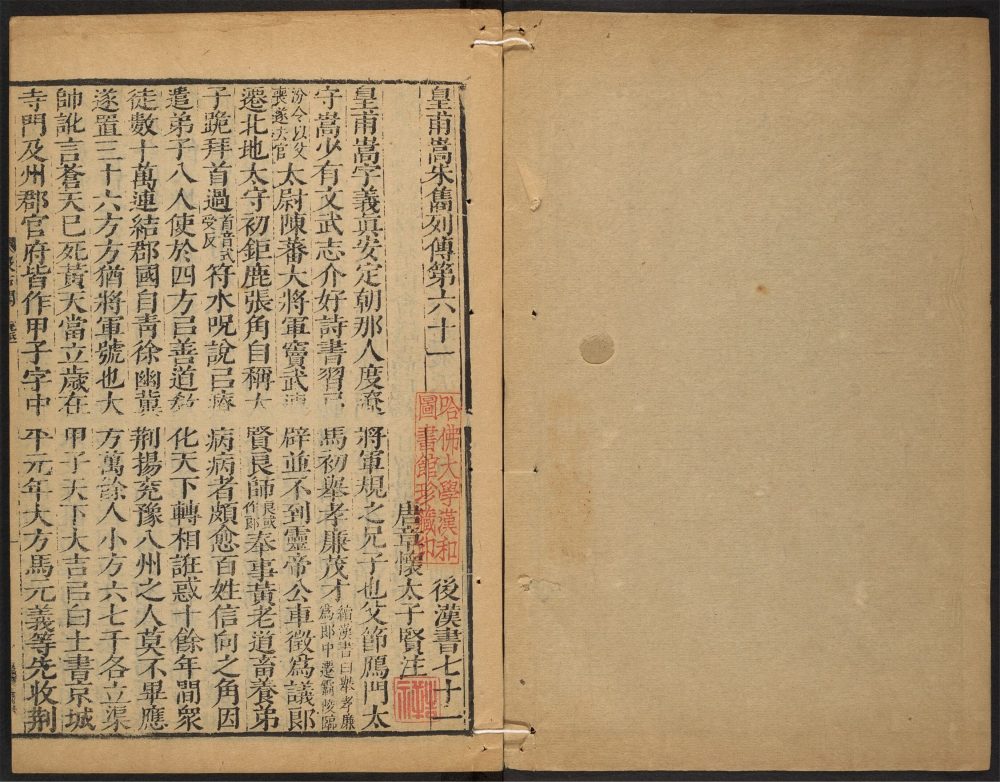 皇甫嵩朱儁列傳第六十一 後漢書七十一
唐章懷太子賢注
皇甫嵩字義眞安定朝那人度遼將軍規之兄子也父節鴈門太
守嵩少有文武志介好詩書習弓馬初舉孝廉茂才續漢書曰舉孝廉爲郎中遷霸陵臨
汾令以父喪遂去官太尉陳蕃大將軍竇武連辟並不到靈帝公車徵爲議郎
遷北地太守初鉅鹿張角自稱大賢良師良或作郎奉事黃老道畜養弟
子跪拜首過首音式受反符水呪說㠯療病病者頗愈百姓信向之角因
遣弟子八人使於四方㠯善道敎化天下轉相誑惑十餘年間衆
徒數十萬連結郡國自靑徐幽冀荆揚兗豫八州之人莫不畢應
遂置三十六方方猶將軍號也大方萬餘人小方六七千各立渠
帥訛言蒼天已死黃天當立歲在甲子天下大吉㠯白土書京城
寺門及州郡官府皆作甲子字中平元年大方馬元義等先收荆
哈佛大學漢和
圖書館珍藏印